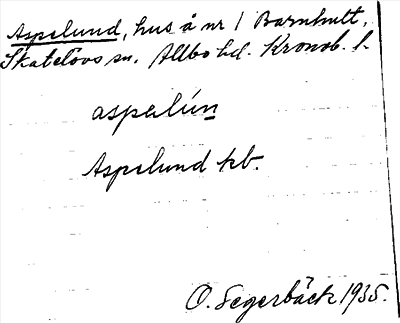 Aspelund, hus å nr 1 Barnhult,
Skatelövs sn. Allbo hd. Kronob. l.
aspəlún
Aspelund kb.
O. Segerbäck 1935.